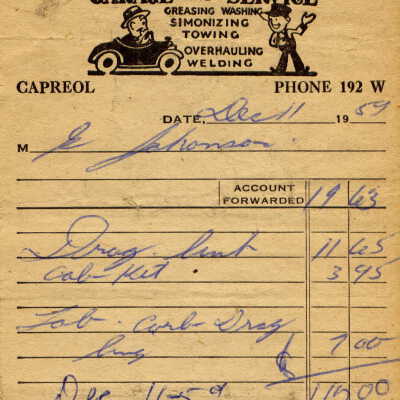 GARAGE SERVICE
GREASING WASHING
SIMONIZING
TOWING
OVERHAULING
WELDING
CAPREOL PHONE 192 W
DATE, Dec 11 1959
M E Johonson
ACCOUNT FORWARDED 19 63
Drag link 11 65
Cab-Ket 3 95
Lab. Carb-Drag 7 00
Dec 11-59 00